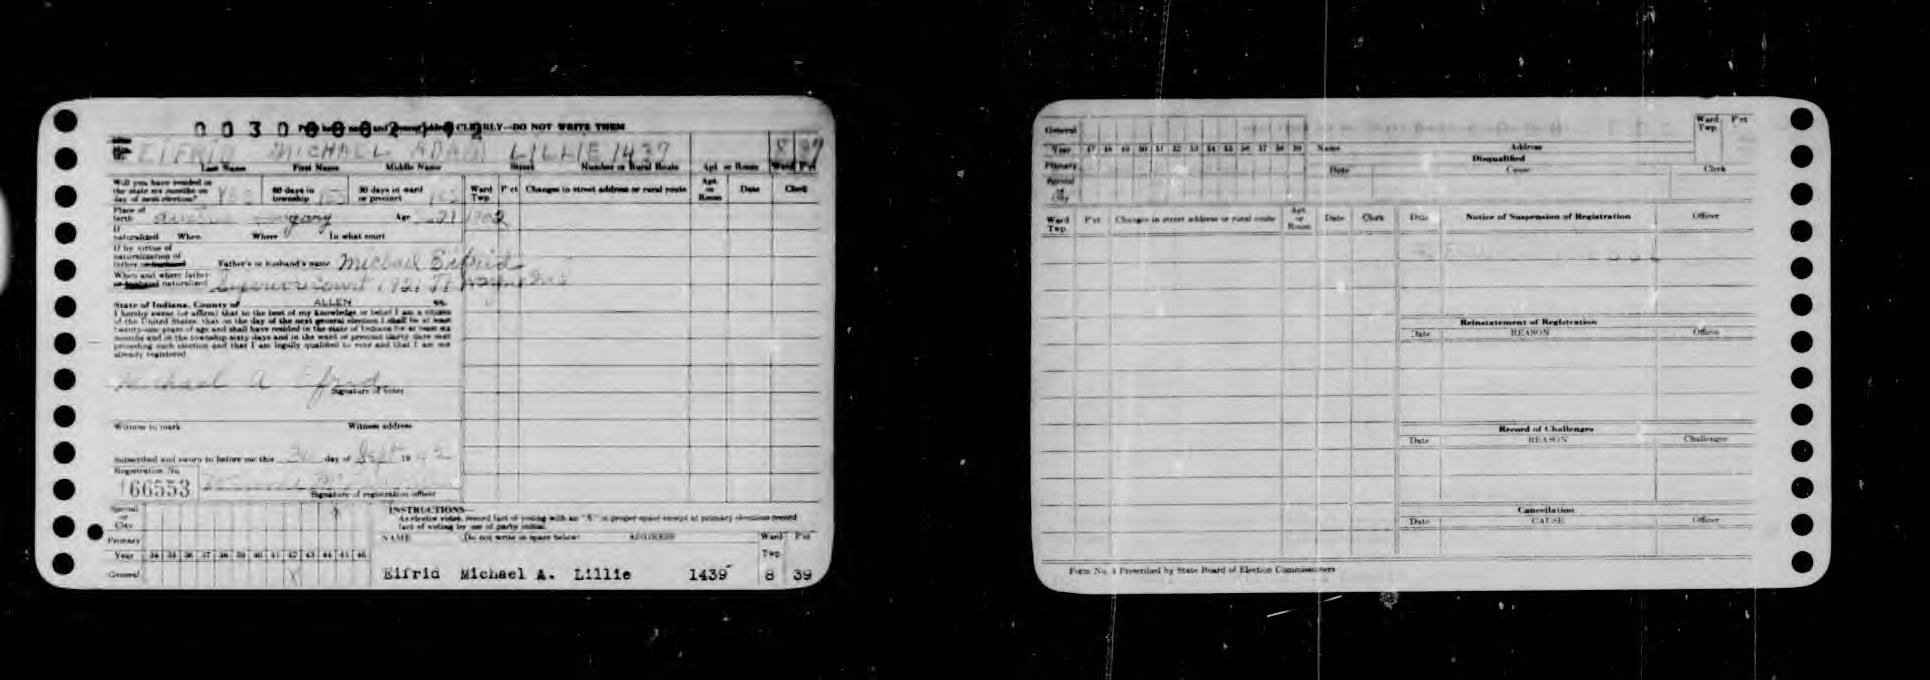 0030000 2192
CLEARLY—DO NOT WRITE THEM
EIFRID MICHAEL ADAM LILLIE 1439 8 39
Last Name First Name Middle Name Street Number or Rural Route Apt. or Room Ward P'ct
Will you have resided in the state six months on day of next election? YES 60 days in township YES 30 days in ward or precinct YES
Ward Twp. P'ct Changes in street address or rural route Apt. or Room Date Clerk
Place of birth Austria Hungary Age 1902
If naturalized When Where In what court
If by virtue of naturalization of father or husband Father's or husband's name Michael Eifrid
When and where father or husband naturalized Superior Court 1921 Ft Wayne Ind
State of Indiana, County of ALLEN ss.
I hereby swear (or affirm) that to the best of my knowledge or belief I am a citizen
of the United States, that on the day of the next general election I shall be at least
twenty-one years of age and shall have resided in the state of Indiana for at least six
months and in the township sixty days and in the ward or precinct thirty days next
preceding such election and that I am legally qualified to vote and that I am not
already registered
Michael A Eifrid
Signature of Voter
Witness to mark Witness address
Subscribed and sworn to before me this day of Sept 1942
Registration No.
166553
Signature of registration officer
Special or City
Primary
Year 34 35 36 37 38 39 40 41 42 43 44 45 46
General X
INSTRUCTIONS—
As elector votes, record fact of voting with an "X" in proper space except at primary elections record
fact of voting by use of party initial
NAME Do not write in space below ADDRESS Ward Twp. P'ct
Eifrid Michael A. Lillie 1439 8 39
General
Year 47 48 49 50 51 52 53 54 55 56 57 58 59
Primary
Special or City
Name Address Ward Twp. P'ct
Disqualified
Date Cause Clerk
Ward Twp. P'ct Changes in street address or rural route Apt. or Room Date Clerk
Date Notice of Suspension of Registration Officer
Reinstatement of Registration
Date REASON Officer
Record of Challenges
Date REASON Challenger
Cancellation
Date CAUSE Officer
Form No. 4 Prescribed by State Board of Election Commissioners